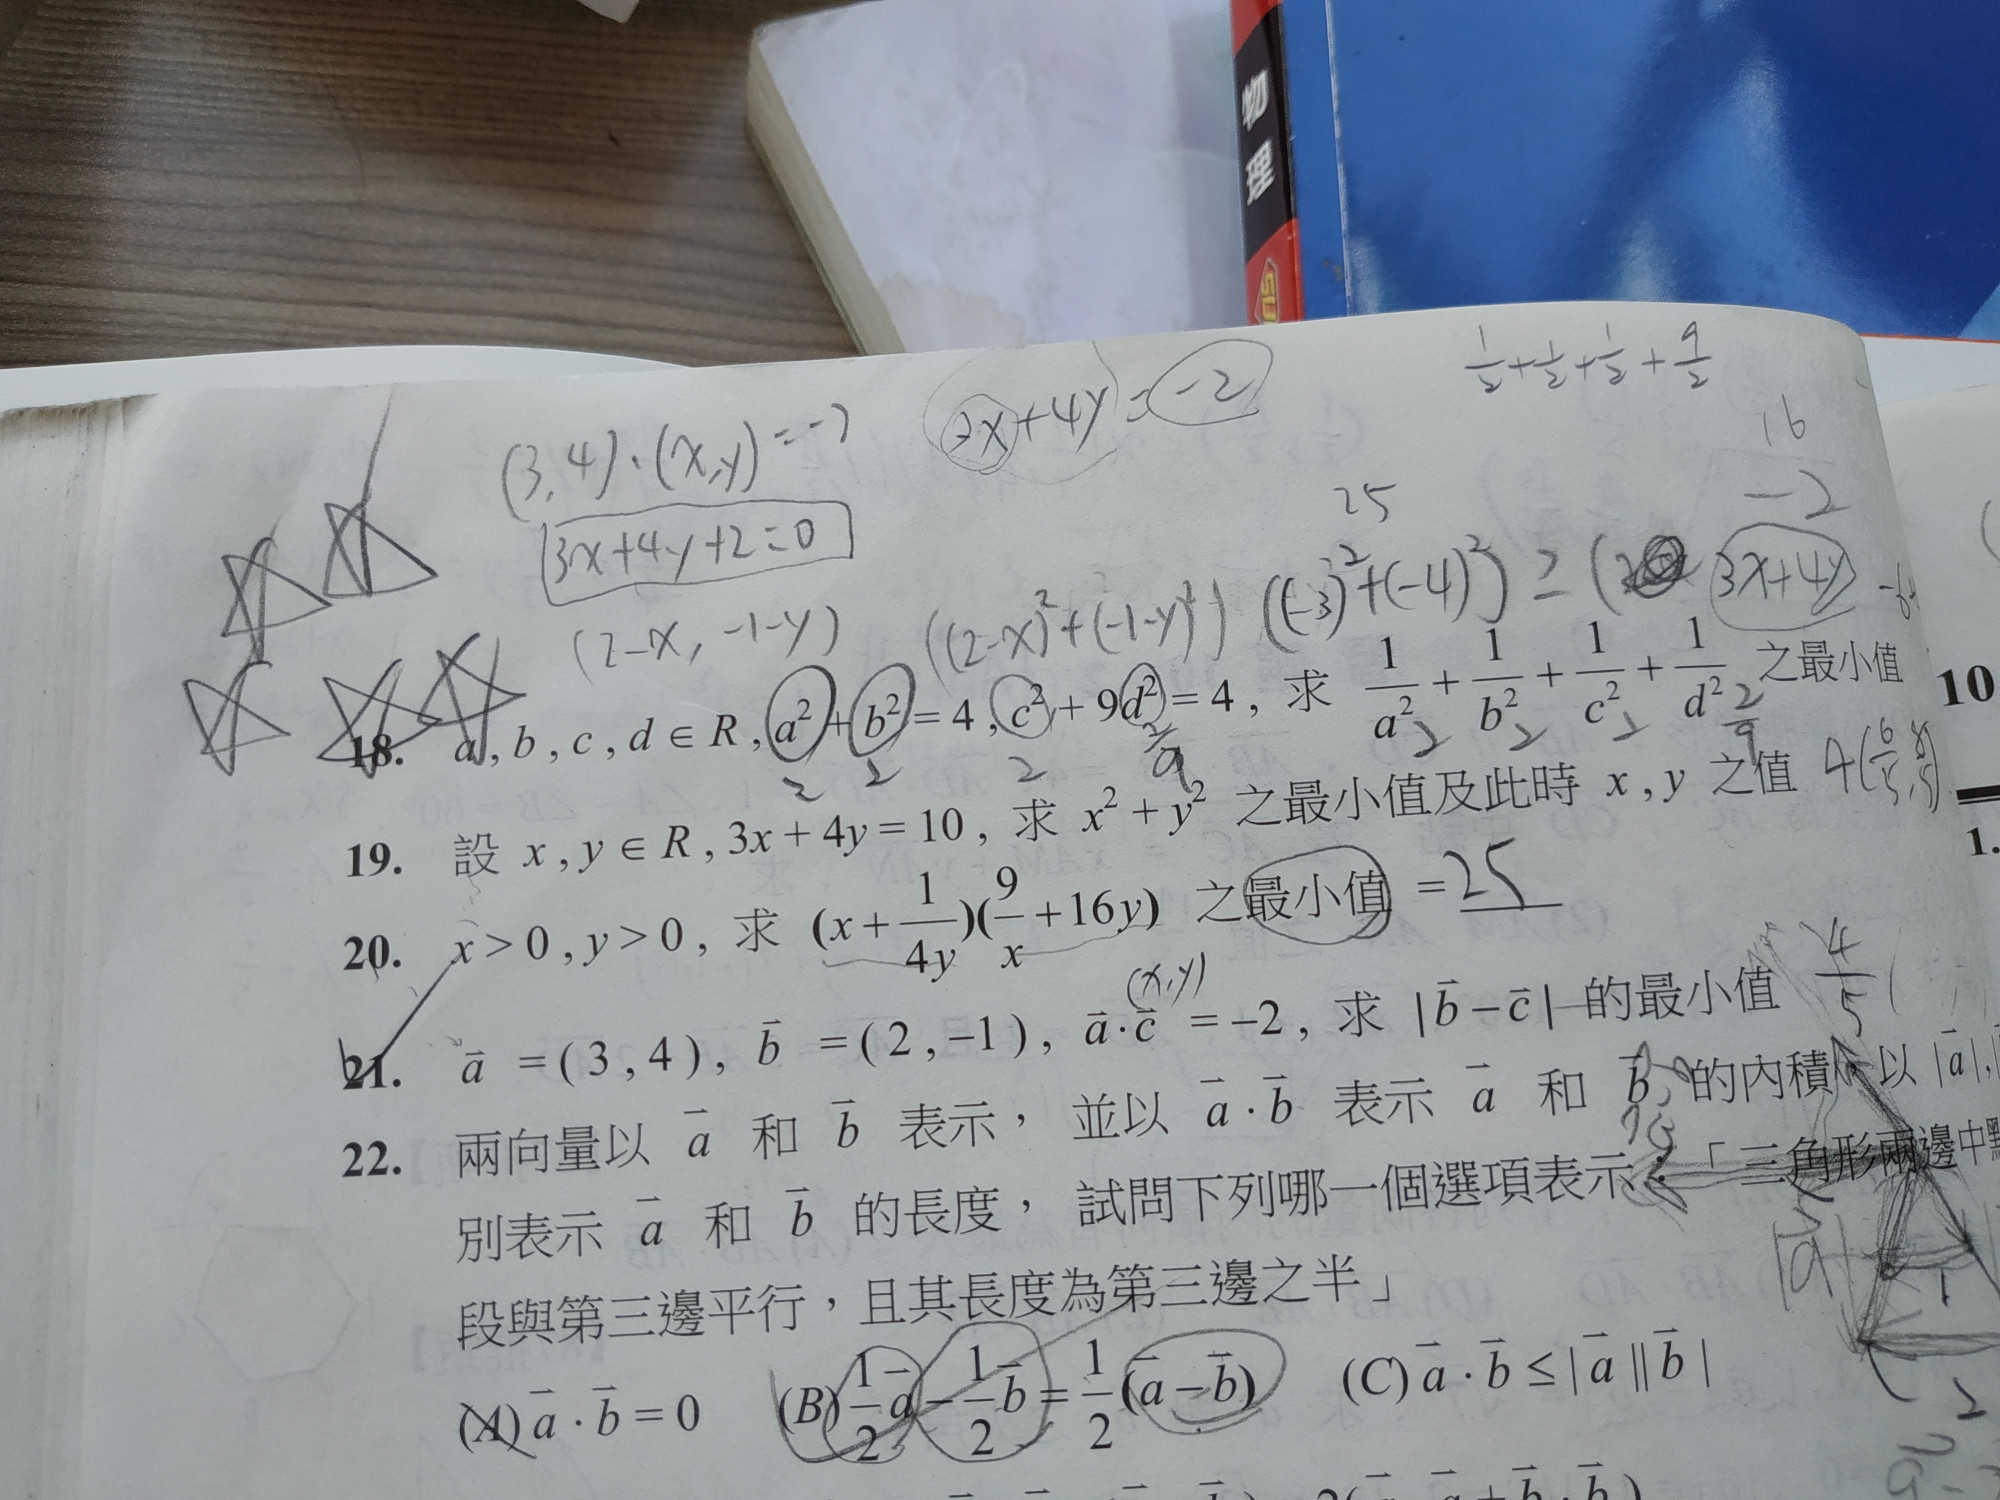 物理
1/2 + 1/2 + 1/2 + 9/2
2x+4y = -2
(3,4)·(x,y) = -2
16
3x+4y+2=0
25
-2
(2-x, -1-y)
((2-x)²+(-1-y)²) ((-3)²+(-4)²) ≥ ( 3x+4y
18. a , b , c , d ∈ R , a² + b² = 4 , c² + 9d² = 4 , 求 1/a² + 1/b² + 1/c² + 1/d² 之最小值
2 2 2 2/9 2 2 2 2/9
10
19. 設 x , y ∈ R , 3x + 4y = 10 , 求 x² + y² 之最小值及此時 x , y 之值 4
1.
20. x > 0 , y > 0 , 求 (x + 1/4y)(9/x + 16y) 之最小值 = 25
(x,y)
21. a⃗ = ( 3 , 4 ) , b⃗ = ( 2 , -1 ) , a⃗ · c⃗ = -2 , 求 | b⃗ - c⃗ | 的最小值 4/5
22. 兩向量以 a⃗ 和 b⃗ 表示， 並以 a⃗ · b⃗ 表示 a⃗ 和 b⃗ 的內積，以 | a⃗ | ,
別表示 a⃗ 和 b⃗ 的長度， 試問下列哪一個選項表示：「三角形兩邊中點
段與第三邊平行，且其長度為第三邊之半」
(A) a⃗ · b⃗ = 0 (B) 1/2 a⃗ - 1/2 b⃗ = 1/2 (a⃗ - b⃗) (C) a⃗ · b⃗ ≤ | a⃗ || b⃗ |
1
2